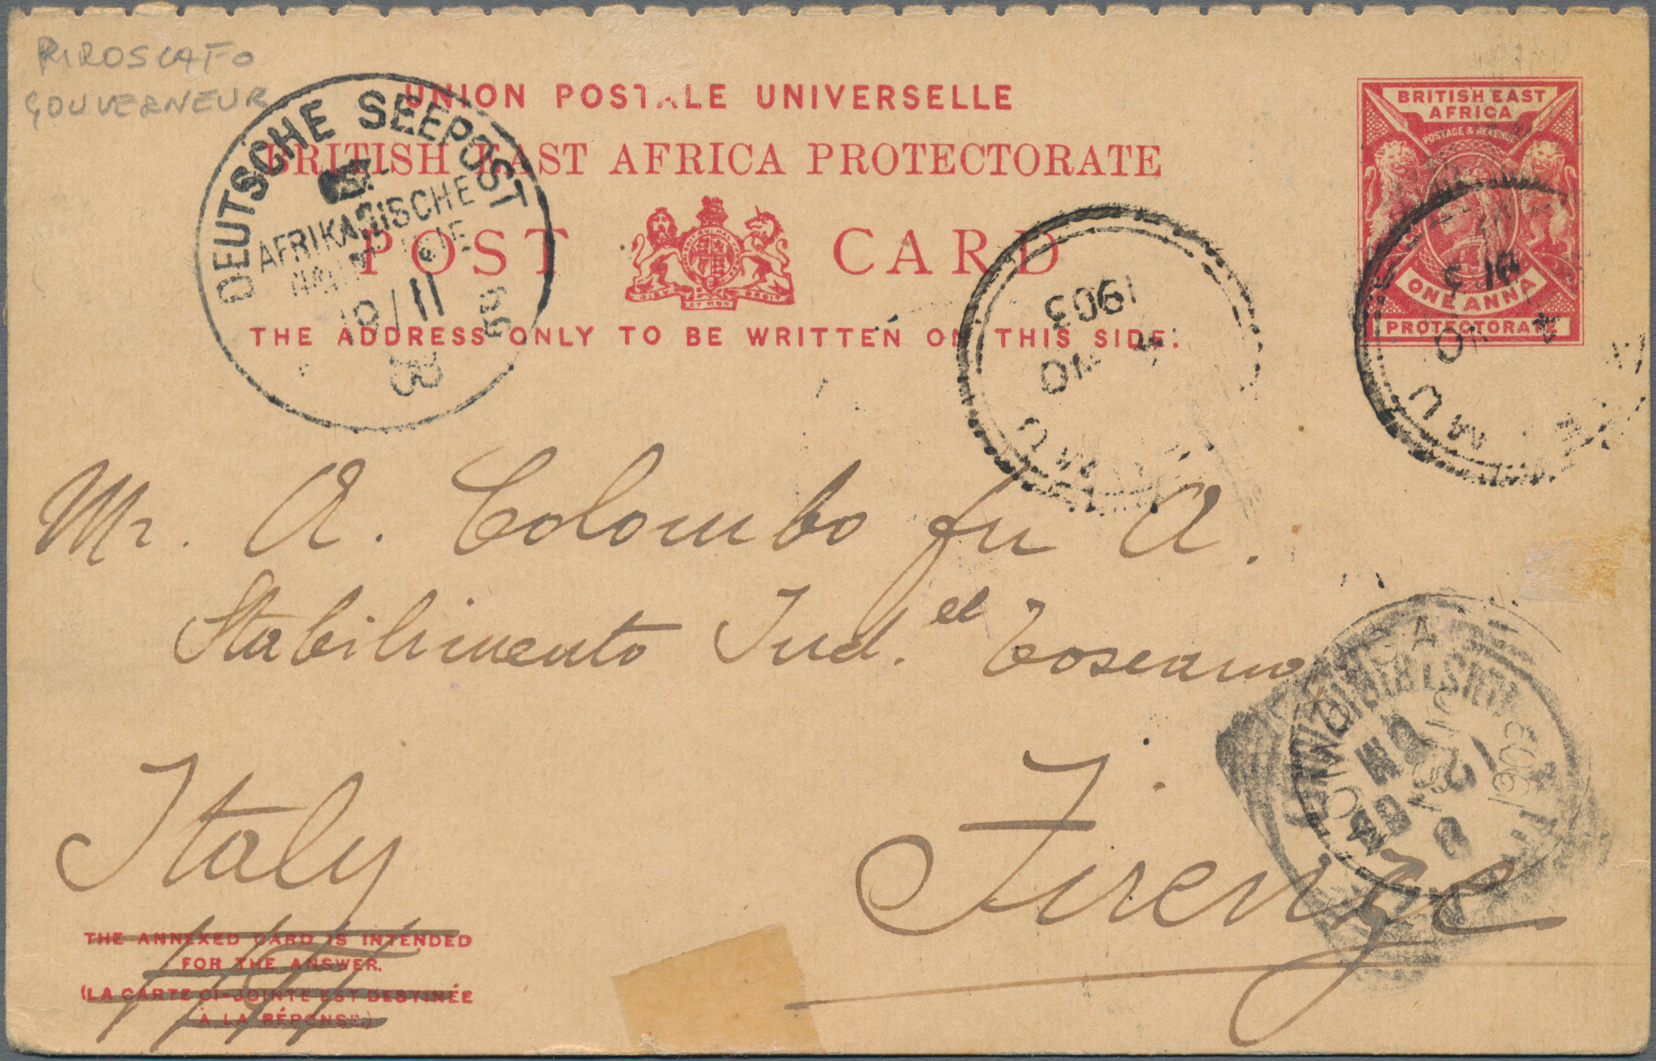 PIROSCAFO
GOUVERNEUR
UNION POSTALE UNIVERSELLE
BRITISH EAST AFRICA PROTECTORATE
POST CARD
THE ADDRESS ONLY TO BE WRITTEN ON THIS SIDE.
BRITISH EAST
AFRICA
POSTAGE & REVENUE
ONE ANNA
PROTECTORATE
DEUTSCHE SEEPOST
OST-
AFRIKANISCHE
HAUPTLINIE
11
03
1903
NO
MU
NO
MU
Mr. A. Colombo fu A.
Stabilimento Ind.el Toscano
Italy
Firenze
12-03
THE ANNEXED CARD IS INTENDED
FOR THE ANSWER.
(LA CARTE CI-JOINTE EST DESTINÉE
À LA RÉPONSE.)